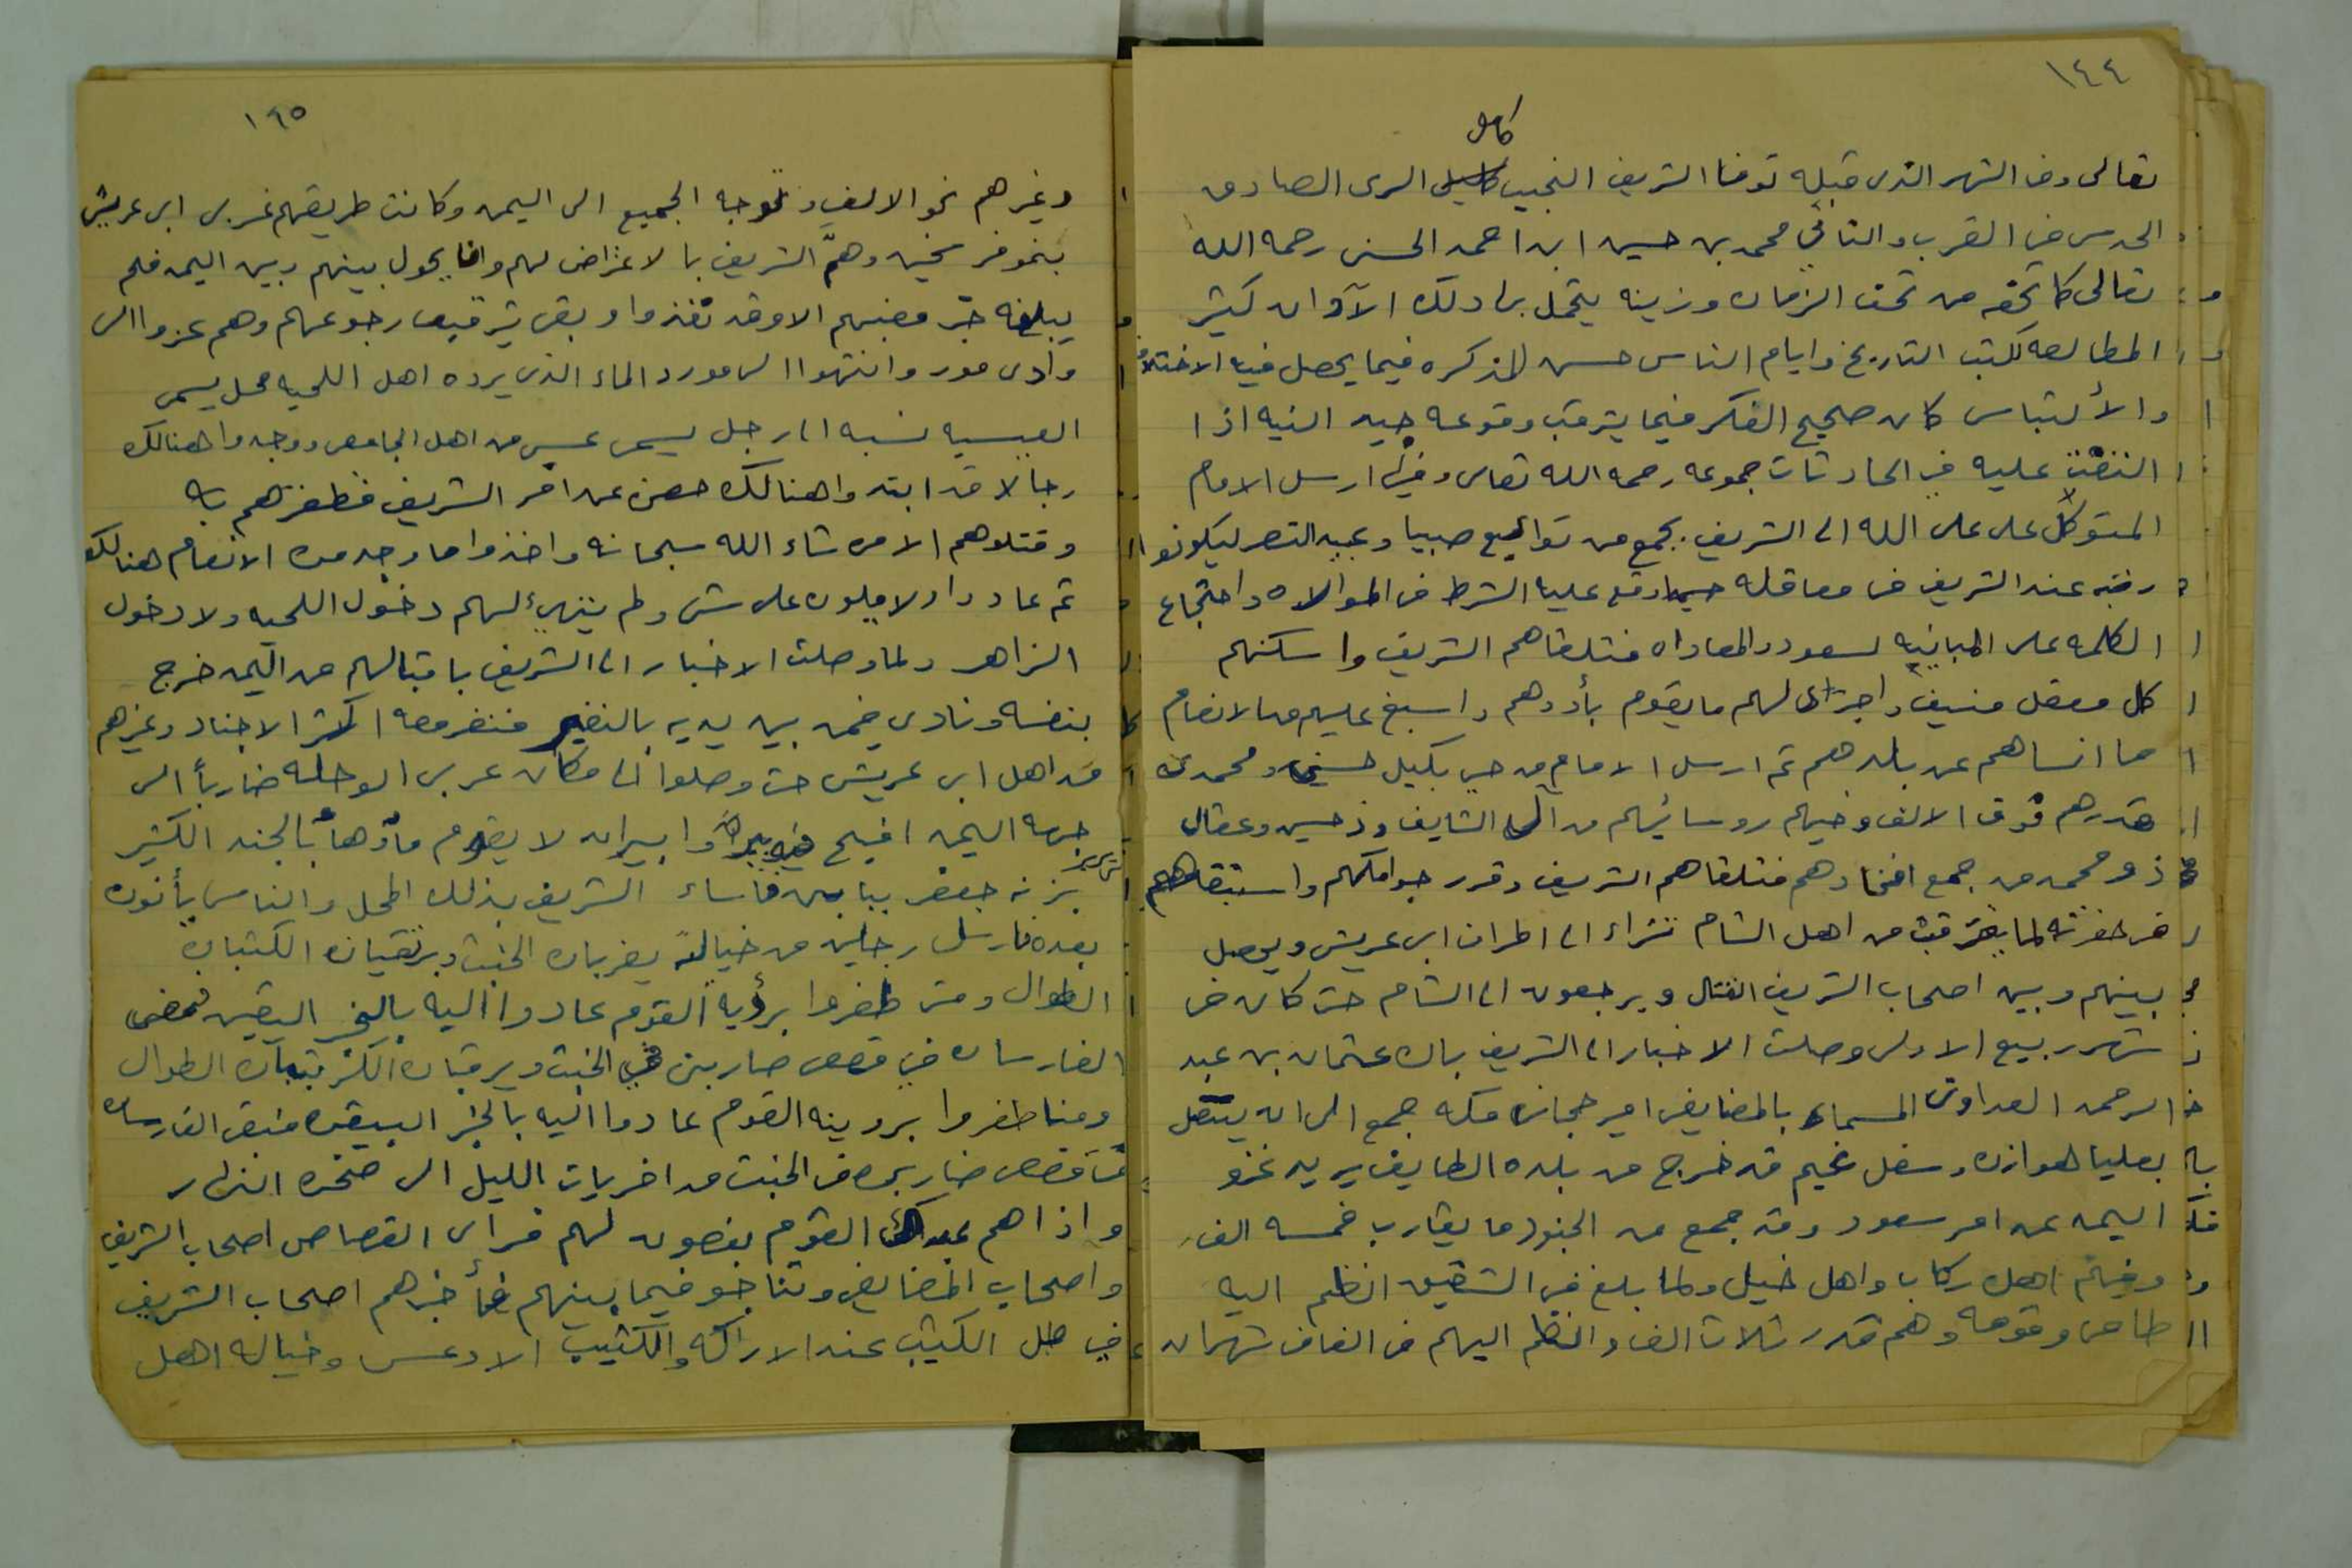 ١٤٤
كامل
تعالى وفي الشهر الذي قبله توفى الشريف النجيب السري الصادق
الحدس في القرب والتاني محمد بن حسين ابن احمد الحسني رحمه الله
تعالى كا تحفه من تحف الزمان وزينه يتجمل بها ذلك الآوان كثير
المطالعه لكتب التاريخ وايام الناس حسن المذكره فيما يحصل فيه الاختلاف
والألتباس كان صحيح الفكر فيما يترقب وقوعه جيد النيه اذا
عليه في الحادثات جموعه رحمه الله تعالى وفيها ارسل الامام
المتوكل على الله الى الشريف بجمع من توابيع صبيا وعبيد النصر ليكونوا
رتبه عند الشريف في معاقله حيما وقع عليه الشرط في الموالاه واجتماع
الكلمه على المباينه لسعود والمعاداه فتلقاهم الشريف واسكنهم
كل معقل منيف واجرى لهم ما يقوم بأودهم واسبغ عليهم من الانعام
ما انساهم عن بلدهم ثم ارسل الامام من حي بكيل حسيني ومحمدي
قدرهم فوق الالف وفيهم روسائهم من آل الشايف وذ حسين وعقال
ذو محمد من جمع افخادهم فتلقاهم الشريف وقرر جوامكهم واستبقاهم
في حضرته لما من اهل الشام تتراء الى اطراف ابي عريش ويحصل
بينهم وبين اصحاب الشريف القتال ويرجعون الى الشام حتى كان في
شهر ربيع الاول وصلت الاخبار الى الشريف بان عثمان بن عبد
الرحمن العداوني المسماء بالمضايفي امير حجاز مكه جمع الى ان يتصل
بعليا هوازن وسفل غيم قد خرج من بلده الطايف يريد غزو
اليمن عن امر سعود وقد جمع من الجنود ما يقارب خمسه الف
وفيهم اهل ركاب واهل خيل ولما بلغ في الشقيق انظم اليه
طامي وقومه وهم قدر ثلاث الف وانظم اليهم من الفاف شهران
١٤٥
وغيرهم نحو الالف وتوجه الجميع الى اليمن وكانت طريقهم غربي ابي عريش
بنحو فرسخين وهمّ الشريف بالاعتراض لهم وان يحول بينهم وبين اليمن فلم
يبلغه خبر مضيهم الا وقد نفذوا وبقي يترقب رجوعهم وهم عزوا الى
وادي مور وانتهوا الى مورد الماء الذي يرده اهل اللحيه محل يسمى
العبسيه نسبه الى رجل يسمى عبسي من اهل الجامعي ووجدوا هنالك
رجالا قد ابتدوا هنالك حصن عن امر الشريف فظفرهم به
وقتلوهم الا من شاء الله سبحانه واخذوا ما وجد من الانعام هنالك
ثم عادوا ولا يلون على شي ولم يتهيئ لهم دخول اللحيه ولا دخول
الزاهر ولما وصلت الاخبار الى الشريف باقبالهم من اليمن خرج
بنفسه ونادى فيمن بين يديه بالنفير فنفر معه اكثر الاجناد وغيرهم
من اهل ابي عريش حتى وصلوا الى مكان غربي الوحله ضارباً الى
جهه اليمن افيح فيه وا بيران لا يقوم ماؤهاً بالجند الكثير
جعفر فاساء الشريف بذلك المحل والناس يأتون
بعده فارسل رجلين من خيالة يضربان الخبت ويرتقيان الكثبان
الطوال ومتى ظفروا برؤية القوم عادوا اليه بالخبر اليقين فمضى
الفارسان في قصص ضاربين في الخبت ويرقيان اكثر كثبان الطوال
ومتا ظفروا برويته القوم عادوا اليه بالخبر اليقين فبقى الفارسان
في قصص ضاربين في الخبت من اخريات الليل الى ضحوه النهار
واذا هم القوم يفصون لهم فرأى القصاص اصحاب الشريف
واصحاب المضايفي وتناجو فيما بينهم فأخبرهم اصحاب الشريف
في ظل الكثيب عند الاراكه والكثيب الاوعس وخياله اهل